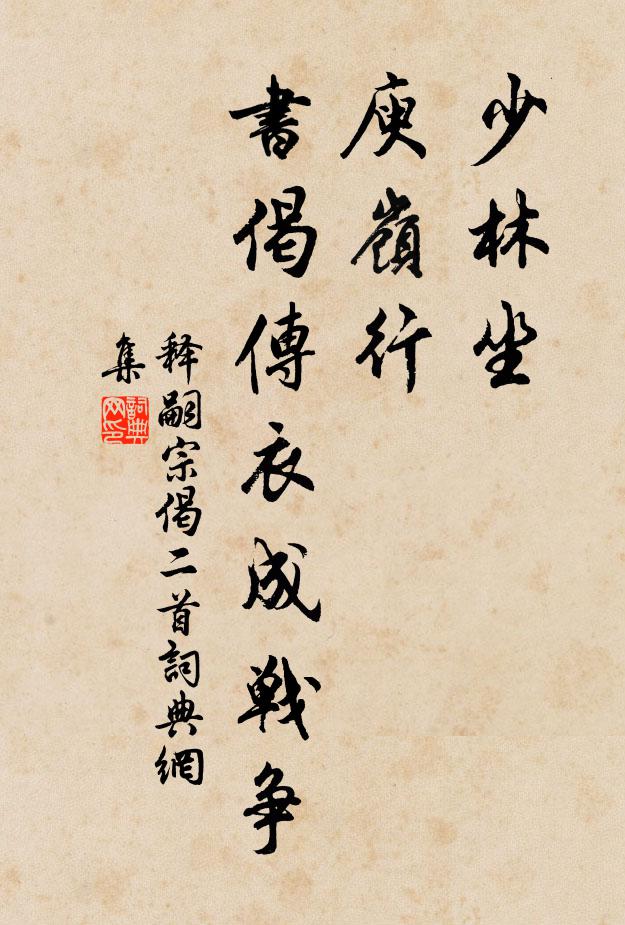 少林坐
庾嶺行
書偈傳衣成戰争
释嗣宗偈二首詞典網
集
詞典
网印